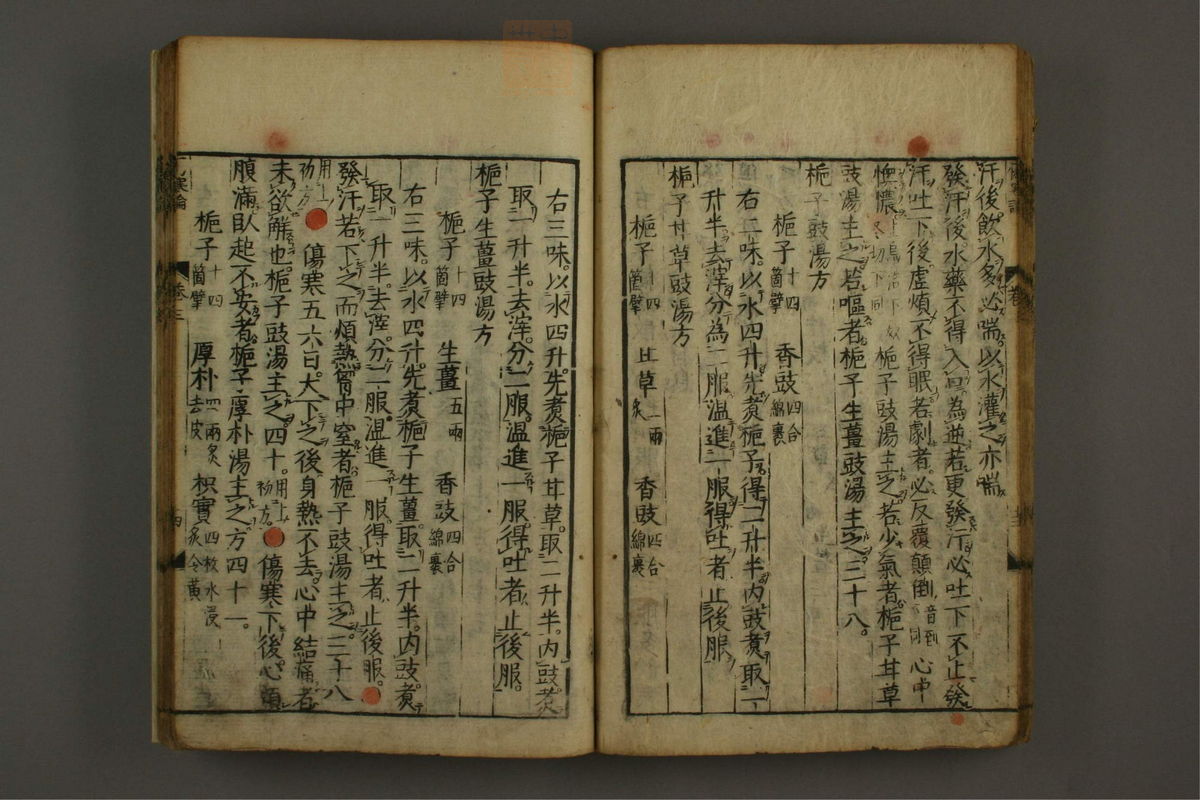 汗後飲水多必喘以水灌之亦喘
發汗後水藥不得入口為逆若更發汗必吐下不止發
汗吐下後虛煩不得眠若劇者必反覆顛倒音到下同心中
懊憹 栀子豉湯主之若少氣者栀子甘草
豉湯主之若嘔者栀子生薑豉湯主之三十八。
栀子豉湯方
栀子十四箇擘 香豉四合綿裹
右二味。以水四升先煑栀子得二升半內豉煑取一
升半。去滓分為二服温進一服得吐者止後服
栀子甘草豉湯方
栀子十四箇擘 甘草二兩炙 香豉四合綿裹
右三味。以水四升。先煑栀子甘草。取二升半。內豉煑。
取一升半。去滓。分二服。温進一服。得吐者止後服。
栀子生薑豉湯方
栀子十四箇擘 生薑五兩 香豉四合綿裹
右三味。以水四升。先煑栀子生薑。取二升半。內豉煑。
取一升半。去滓。分二服温進一服得吐者。止後服。
發汗若下之而煩熱胷中窒者栀子豉湯主之。三十八
用上初方 傷寒五六日。大下之後身熱不去心中結痛者
未欲解也。栀子豉湯主之四十。用上初方。 傷寒下後心煩
腹滿臥起不安者栀子厚朴湯主之方四十一。
栀子十四箇擘 厚朴四兩炙去皮 枳實四枚水浸炙令黃
卷三